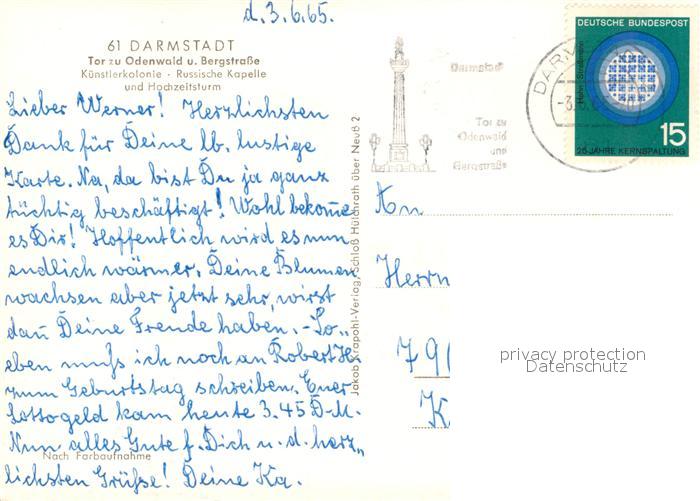 d. 3.6.65.
61 DARMSTADT
Tor zu Odenwald u. Bergstraße
Künstlerkolonie - Russische Kapelle
und Hochzeitsturm
Lieber Werner! Herzlichsten
Dank für Deine lb. lustige
Karte. Na, da bist Du ja ganz
tüchtig beschäftigt! Wohl bekome
es Dir! Hoffentlich wird es nun
endlich wärmer. Deine Blumen
wachsen aber jetzt sehr, wirst
dan Deine Freude haben. - So„
eben muß ich noch an Robert H.
zum Geburtstag schreiben. Euer
Lottogeld kam heute 3.45 D-M.
Nun alles Gute f. Dich u. d. herz„
lichsten Grüße! Deine Ka.
Nach Farbaufnahme
Jakob Krapohl-Verlag, Schloß Hülchrath über Neuß 2
Darmstadt
Tor zu
Odenwald
und
Bergstraße
DARM
-3.6.6
DEUTSCHE BUNDESPOST
Hahn Straßmann
15
25 JAHRE KERNSPALTUNG
An
Herrn
79
K
privacy protection
Datenschutz